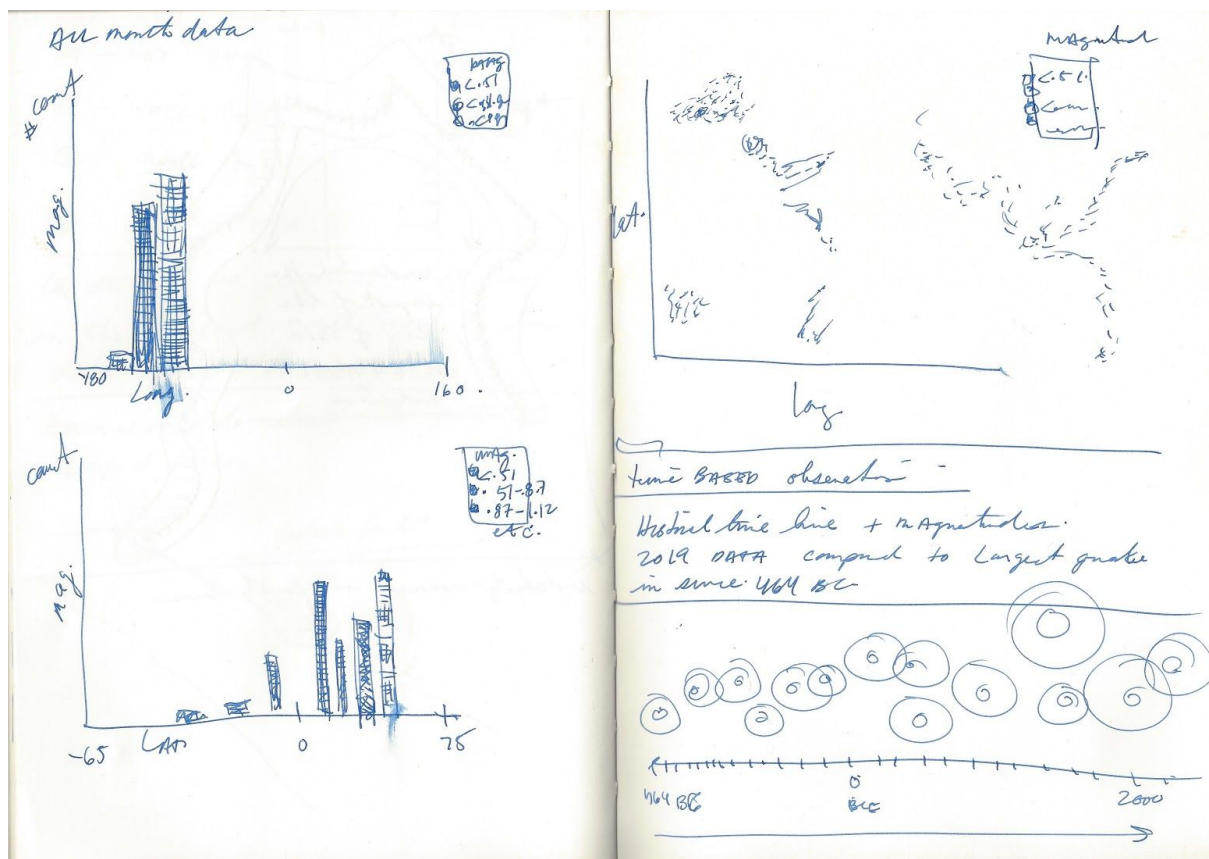 All months data
# count
mag.
<.51
-180
Long.
0
160.
count
mag.
mag.
<.51
.51-.87
.87-1.12
etc.
-65
LAT
0
75
<.51
Lat.
Long
time BASED observation
Historical time line + magnitudes.
2019 DATA compared to Largest quake
in since 464 BC
464 BC
0
BCE
2000